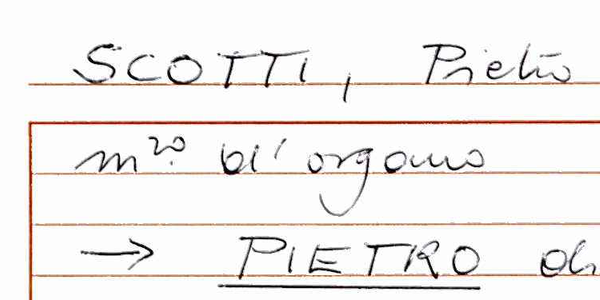 SCOTTI, Pietro
m.ro d'organo
→ PIETRO di